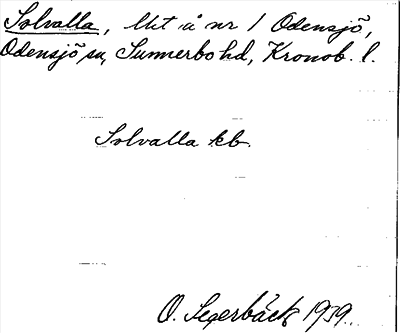 Solvalla, lht å nr 1 Odensjö,
Odensjö sn, Sunnerbo hd, Kronob. l.
Solvalla kb.
O. Segerbäck 1939.